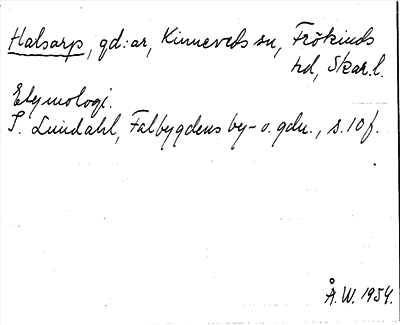 Halsarp, gd:ar, Kinneveds sn, Frökinds
hd, Skar.l.
Etymologi.
I. Lundahl, Falbygdens by- o. gdn., s. 10 f.
Å. W. 1954.